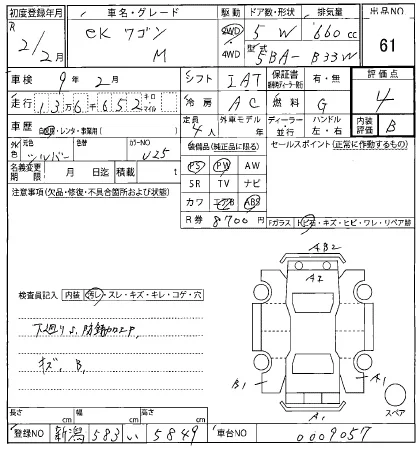 初度登録年月 車名・グレード 駆動 ドア数・形状 排気量 出品NO
R 2/2月 eK ワゴン M 2WD 4WD 5 W 660 cc 61
型式 5BA- B33W
車検 9年 2月 シフト IAT 保証書 有・無 評価点 4
走行 13万6千652 キロ マイル 冷房 AC 燃料 G
車歴 自家用・レンタ・事業用( ) 定員 4人 外車モデル 年 ディーラー 並行 ハンドル 左・右 内装評価 B
色 元色 シルバー 色替 カラーNO U25
装備品(純正品に限る) セールスポイント(正常に作動するもの)
名義変更期限 月 日迄 積載 t
PS PW AW
SR TV ナビ
カワ エアB ABS
R券 8700円
注意事項(欠品・修復・不具合箇所および状態)
Fガラス トビ石・キズ・ヒビ・ワレ・リペア跡
AB2
A2
検査員記入 内装 汚レ・スレ・キズ・キレ・コゲ・穴
下廻りS、防錆加工P、
キズ、B、
B1 A1
A1
スペア
長さ cm 幅 cm 高さ cm
登録NO 新潟 583 い 5849 車台NO 0009057